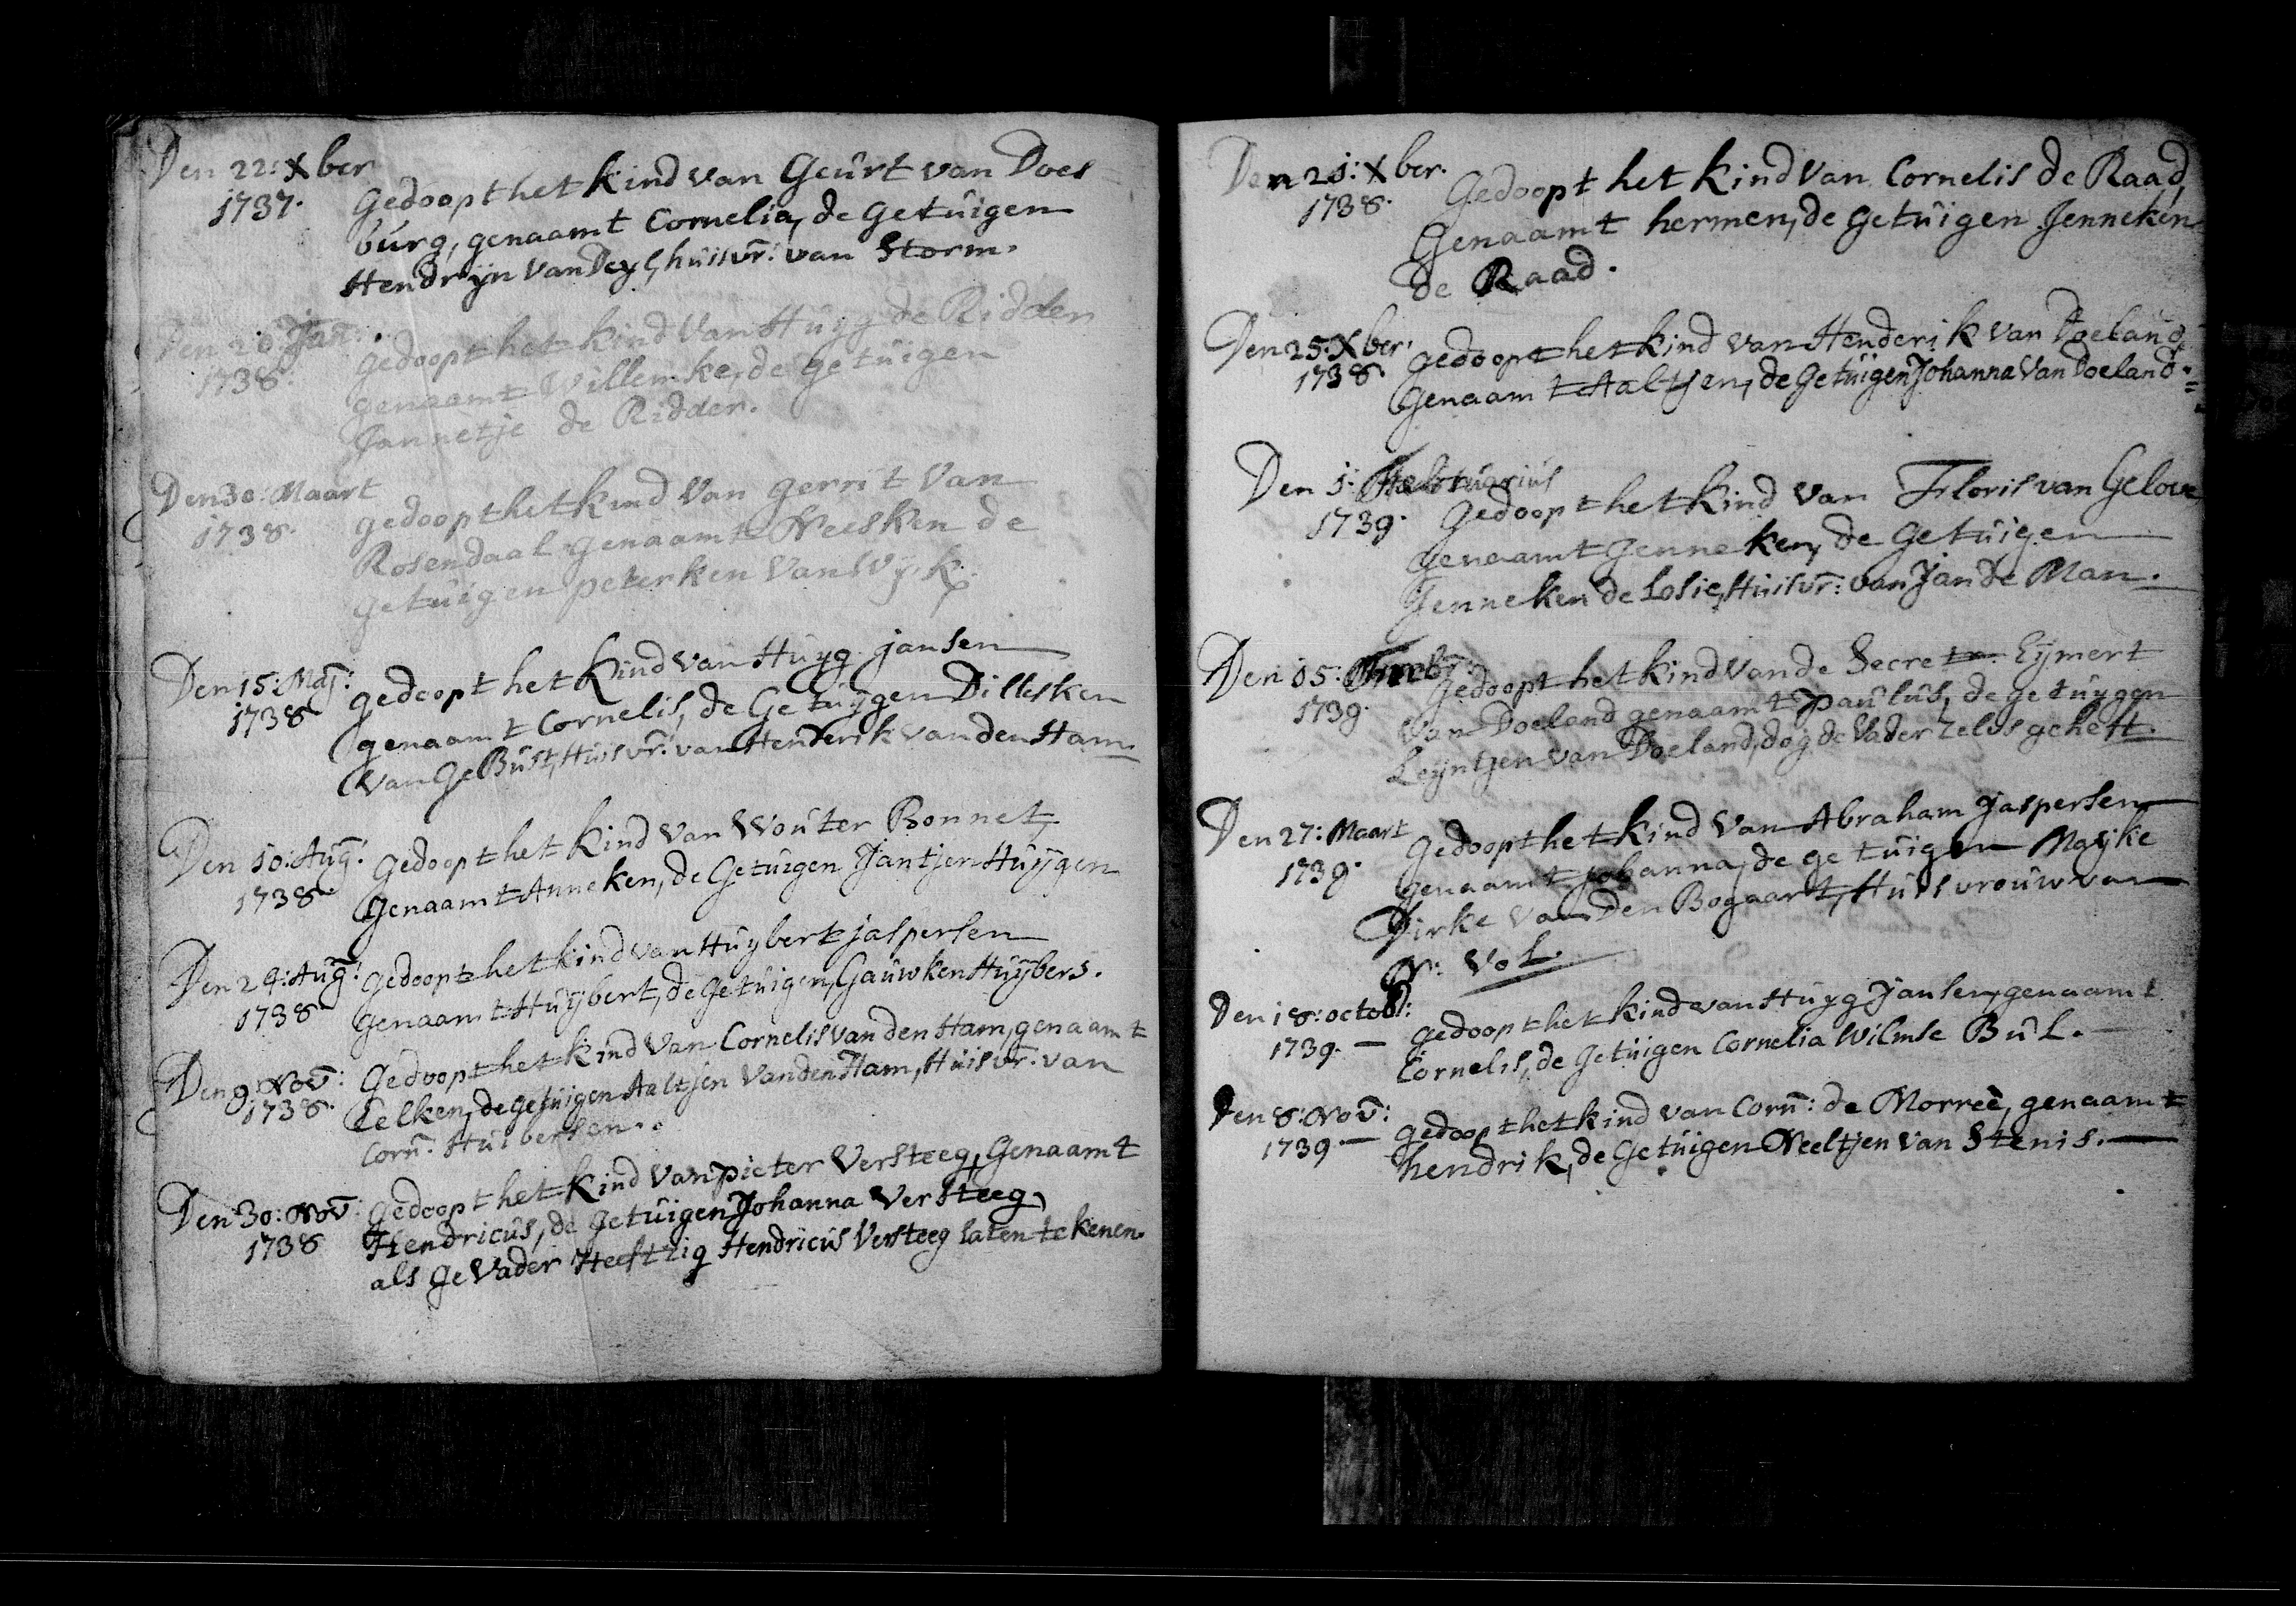 Den 22: Xber
1737. Gedoopt het kind van Geurt van Does
burg, genaamt Cornelia, de Getuigen
Hendrijn van Deyl, huisvr: van Storm.
Den 26 Jan:
1738. gedoopt het kind van Huyg de Ridder
genaamt Willemke, de getuigen
Jannetje de Ridder.
Den 30: Maart
1738. gedoopt het kind van gerrit van
Rosendaal genaamt Neesken de
getuigen peterken van Wyk
Den 15: Maj: gedoopt het kind van Huyg jansen
1738 genaamt Cornelis, de Getuygen Dillisken
van Ge Bust, Huisvr: van Henderik van den Ham.
Den 10: Aug: Gedoopt het kind van Wouter Bonnet,
1738 Genaamt Anneken, de Getuigen Jantjen Huijgen
Den 24: Aug: Gedoopt het kind van Huybert jaspersen
1738 Genaamt Huijbert, de Getuigen, Gauwken Huijbers.
Den 9: Nov: Gedoopt het kind van Cornelis van den Ham, genaamt
1738. Eelken, de getuigen Aaltjen van den Ham, Huisvr: van
Corn: Huibersen.
Den 30: Nov: Gedoopt het kind van pieter Versteeg, Genaamt
1738 Hendricus, de Getuigen Johanna Versteeg,
als Ge Vader Heeft zig Hendricus Versteeg laten tekenen.
Den 21: Xber.
1738. Gedoopt het kind van Cornelis de Raad,
Genaamt hermen, de getuigen Jenneken
de Raad.
Den 25: Xber. gedoopt het kind van Henderik van Doeland,
1738 Genaamt Aaltjen, de Getuigen Johanna van Doeland.
Den 1: Februarius
1739. Gedoopt het kind van Floris van Gelove
genaamt Jenneken, de Getuigen
Jenneken de Losie, Huisvr: van Jan de Man.
Den 15: Feb: Gedoopt het kind van de Secret. Eijmert
1739. van Doeland genaamt paulus, de getuygen
Leijntjen van Doeland, dog de Vader zelvs geheft.
Den 27: Maart Gedoopt het kind van Abraham jaspersen
1739. genaamt johanna, de getuigen Mayke
Dirke van Den Bogaart, Huisvrouw van
W: Vol.
Den 18: octob: gedoopt het kind van Huyg Jansen, genaamt
1739. — Cornelis, de Getuigen Cornelia Wilmse Bul. —
Den 8: Nov: gedoopt het kind van Corn: de Morreè, genaamt
1739 — hendrik, de Getuigen Neeltjen van Stenis. —